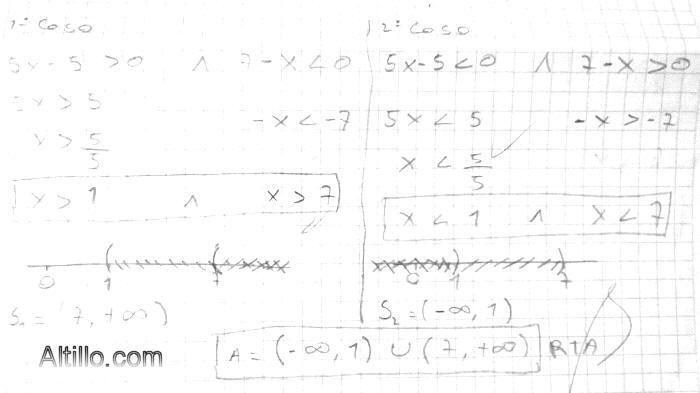 1° Caso
5x - 5 > 0 ∧ 7 - x < 0
5x > 5
-x < -7
x > 5/5
x > 1 ∧ x > 7
0 1 7
S₁ = (7, +∞)
2° Caso
5x - 5 < 0 ∧ 7 - x > 0
5x < 5 -x > -7
x < 5/5
x < 1 ∧ x < 7
0 1 7
S₂ = (-∞, 1)
A = (-∞, 1) ∪ (7, +∞) RTA
Altillo.com